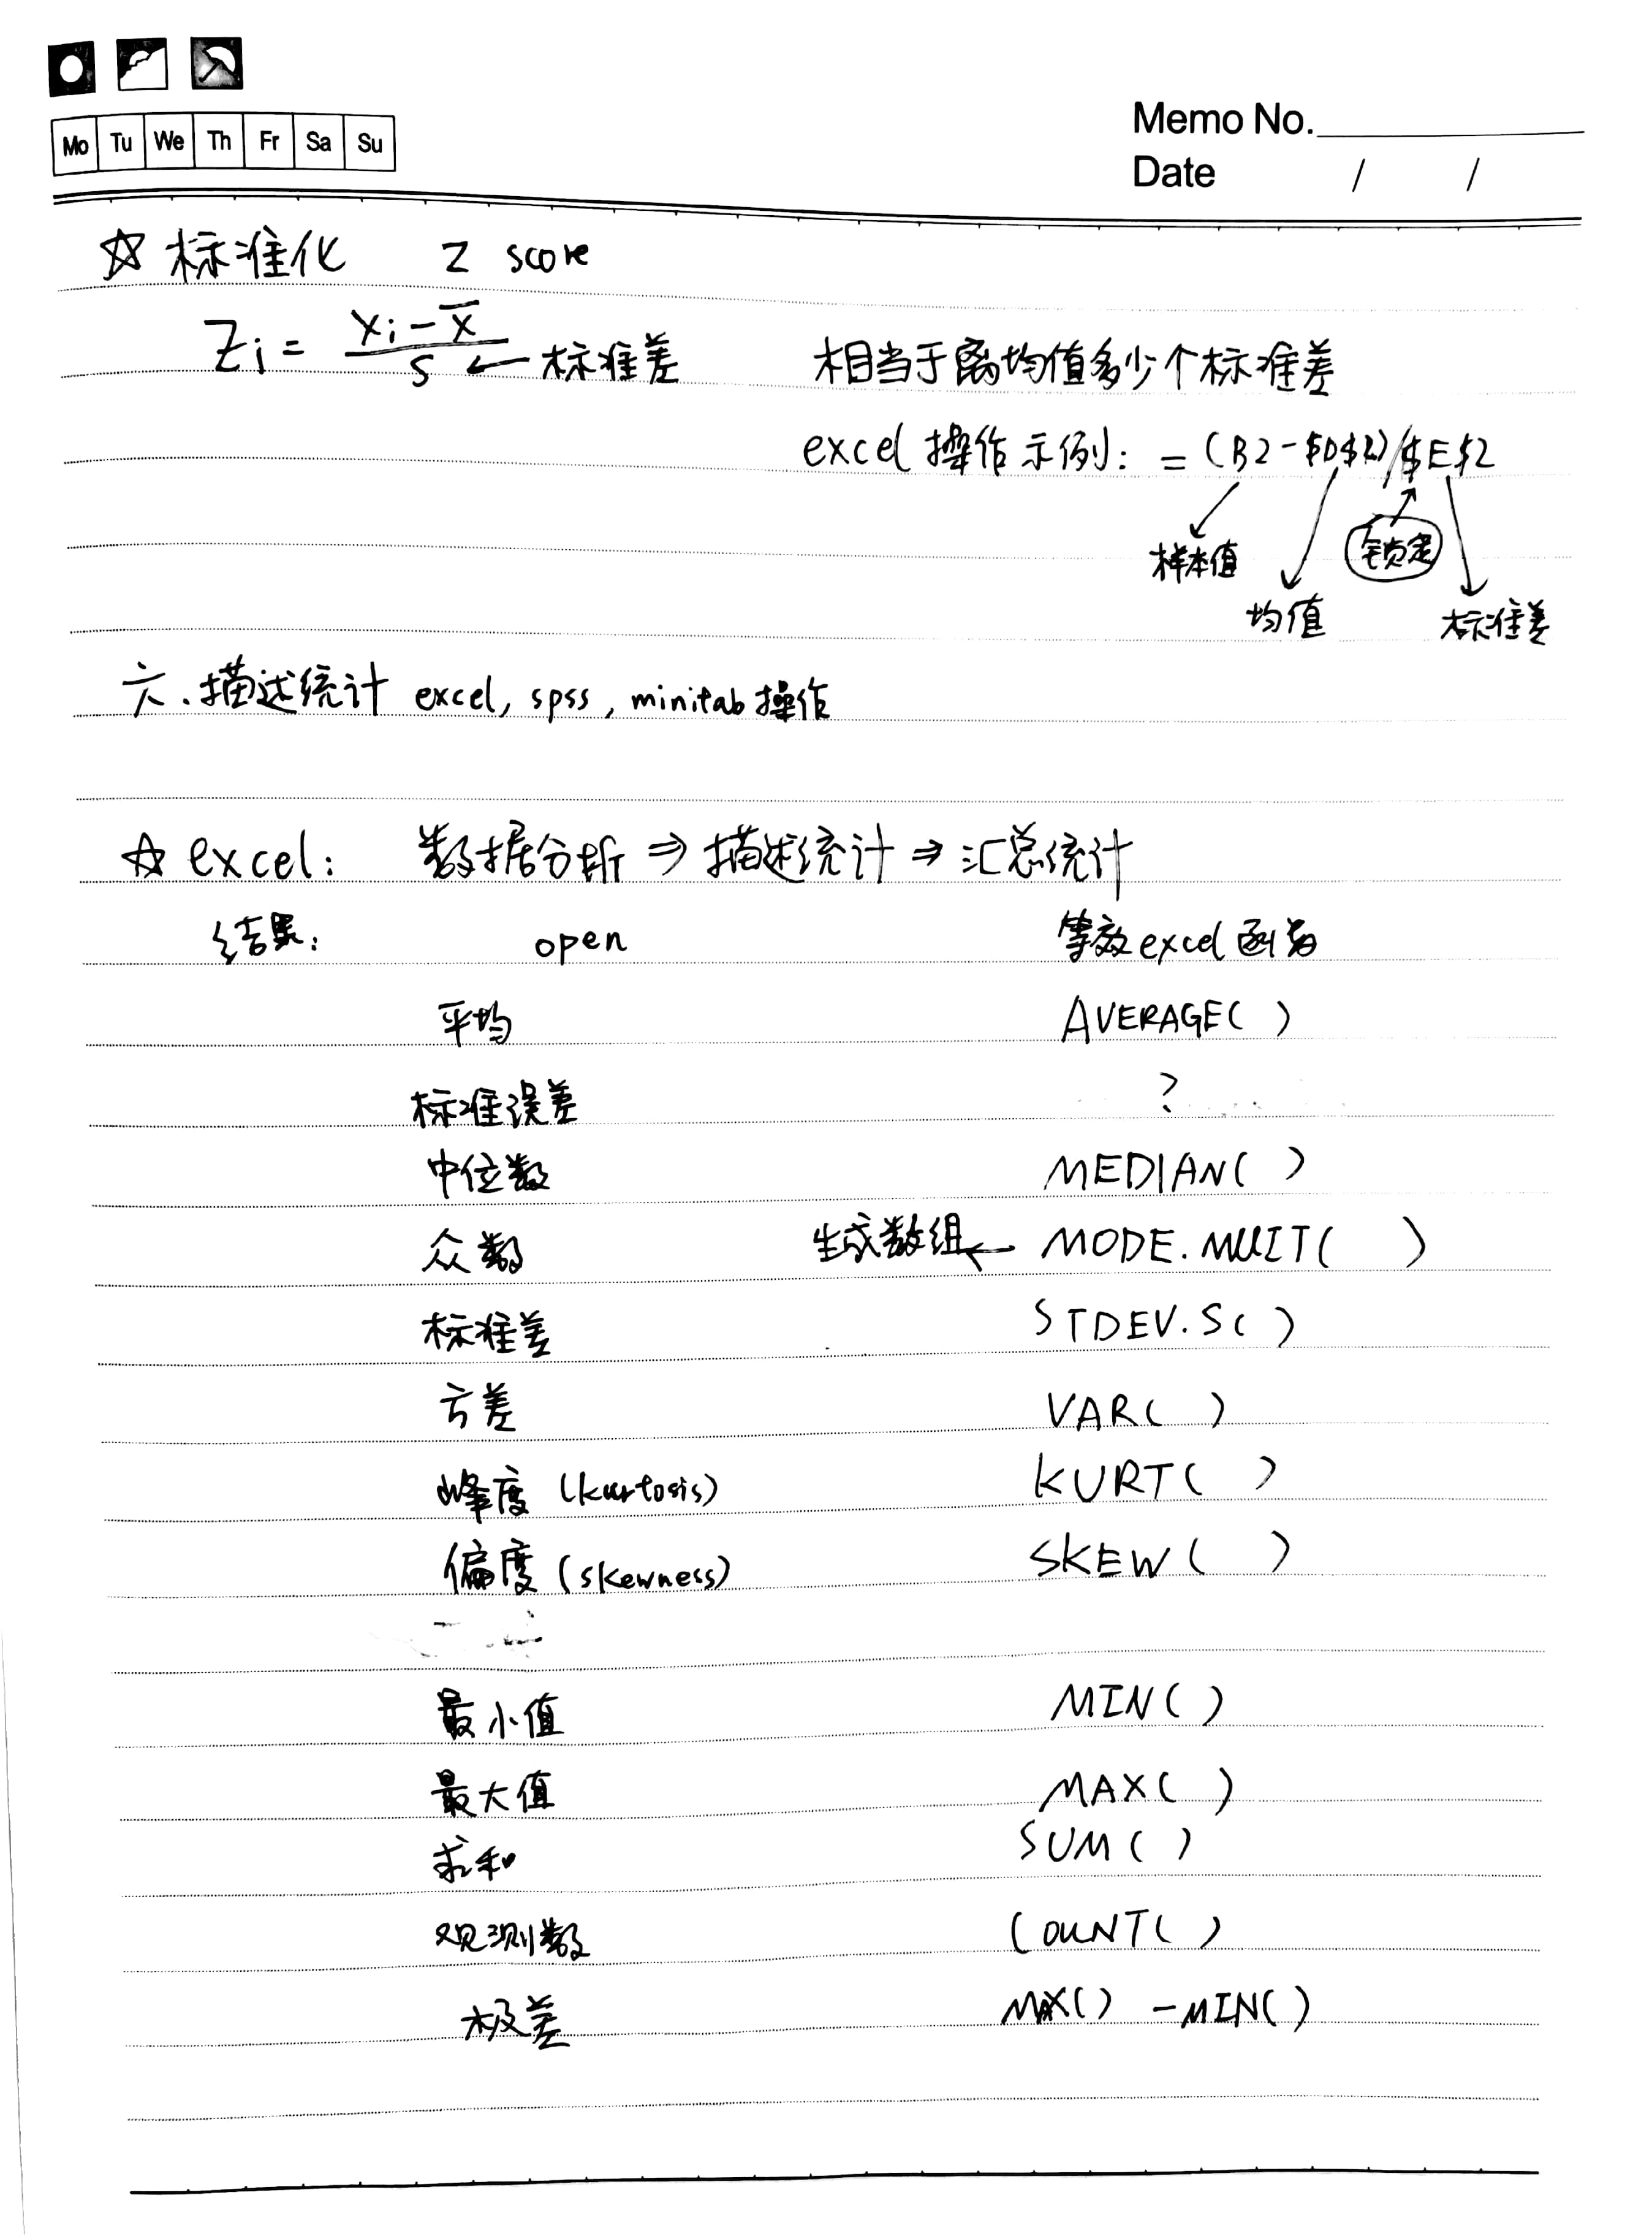 Mo Tu We Th Fr Sa Su
Memo No.
Date / /
☆ 标准化 Z score
Zi = (xi - x̄) / s ← 标准差 相当于离均值多少个标准差
excel 操作示例: = (B2-$D$2)/$E$2
样本值 锁定
均值 标准差
六.描述统计 excel, spss, minitab操作
☆ excel: 数据分析 ⇒ 描述统计 ⇒ 汇总统计
结果: open 等效excel函数
平均 AVERAGE( )
标准误差 ?
中位数 MEDIAN( )
众数 生成数组 ← MODE.MULT( )
标准差 STDEV.S( )
方差 VAR( )
峰度 (kurtosis) KURT( )
偏度 (skewness) SKEW( )
最小值 MIN( )
最大值 MAX( )
求和 SUM( )
观测数 COUNT( )
极差 MAX() -MIN()